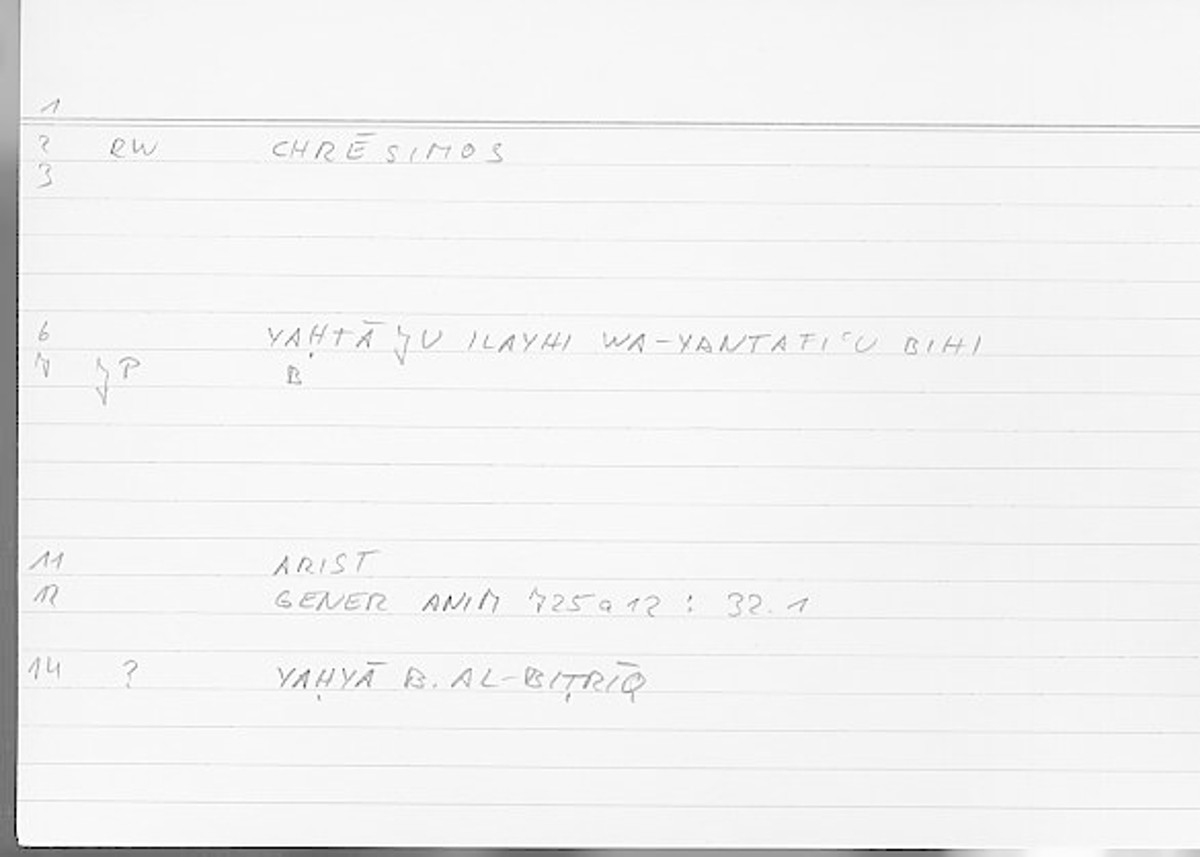 1
2 RW CHRĒSIMOS
3
6 YAḤTĀJU ILAYHI WA-YANTAFIʿU BIHI
7 JP B
11 ARIST
12 GENER ANIM 725a12 : 32.1
14 ? YAḤYĀ B. AL-BIṬRĪQ